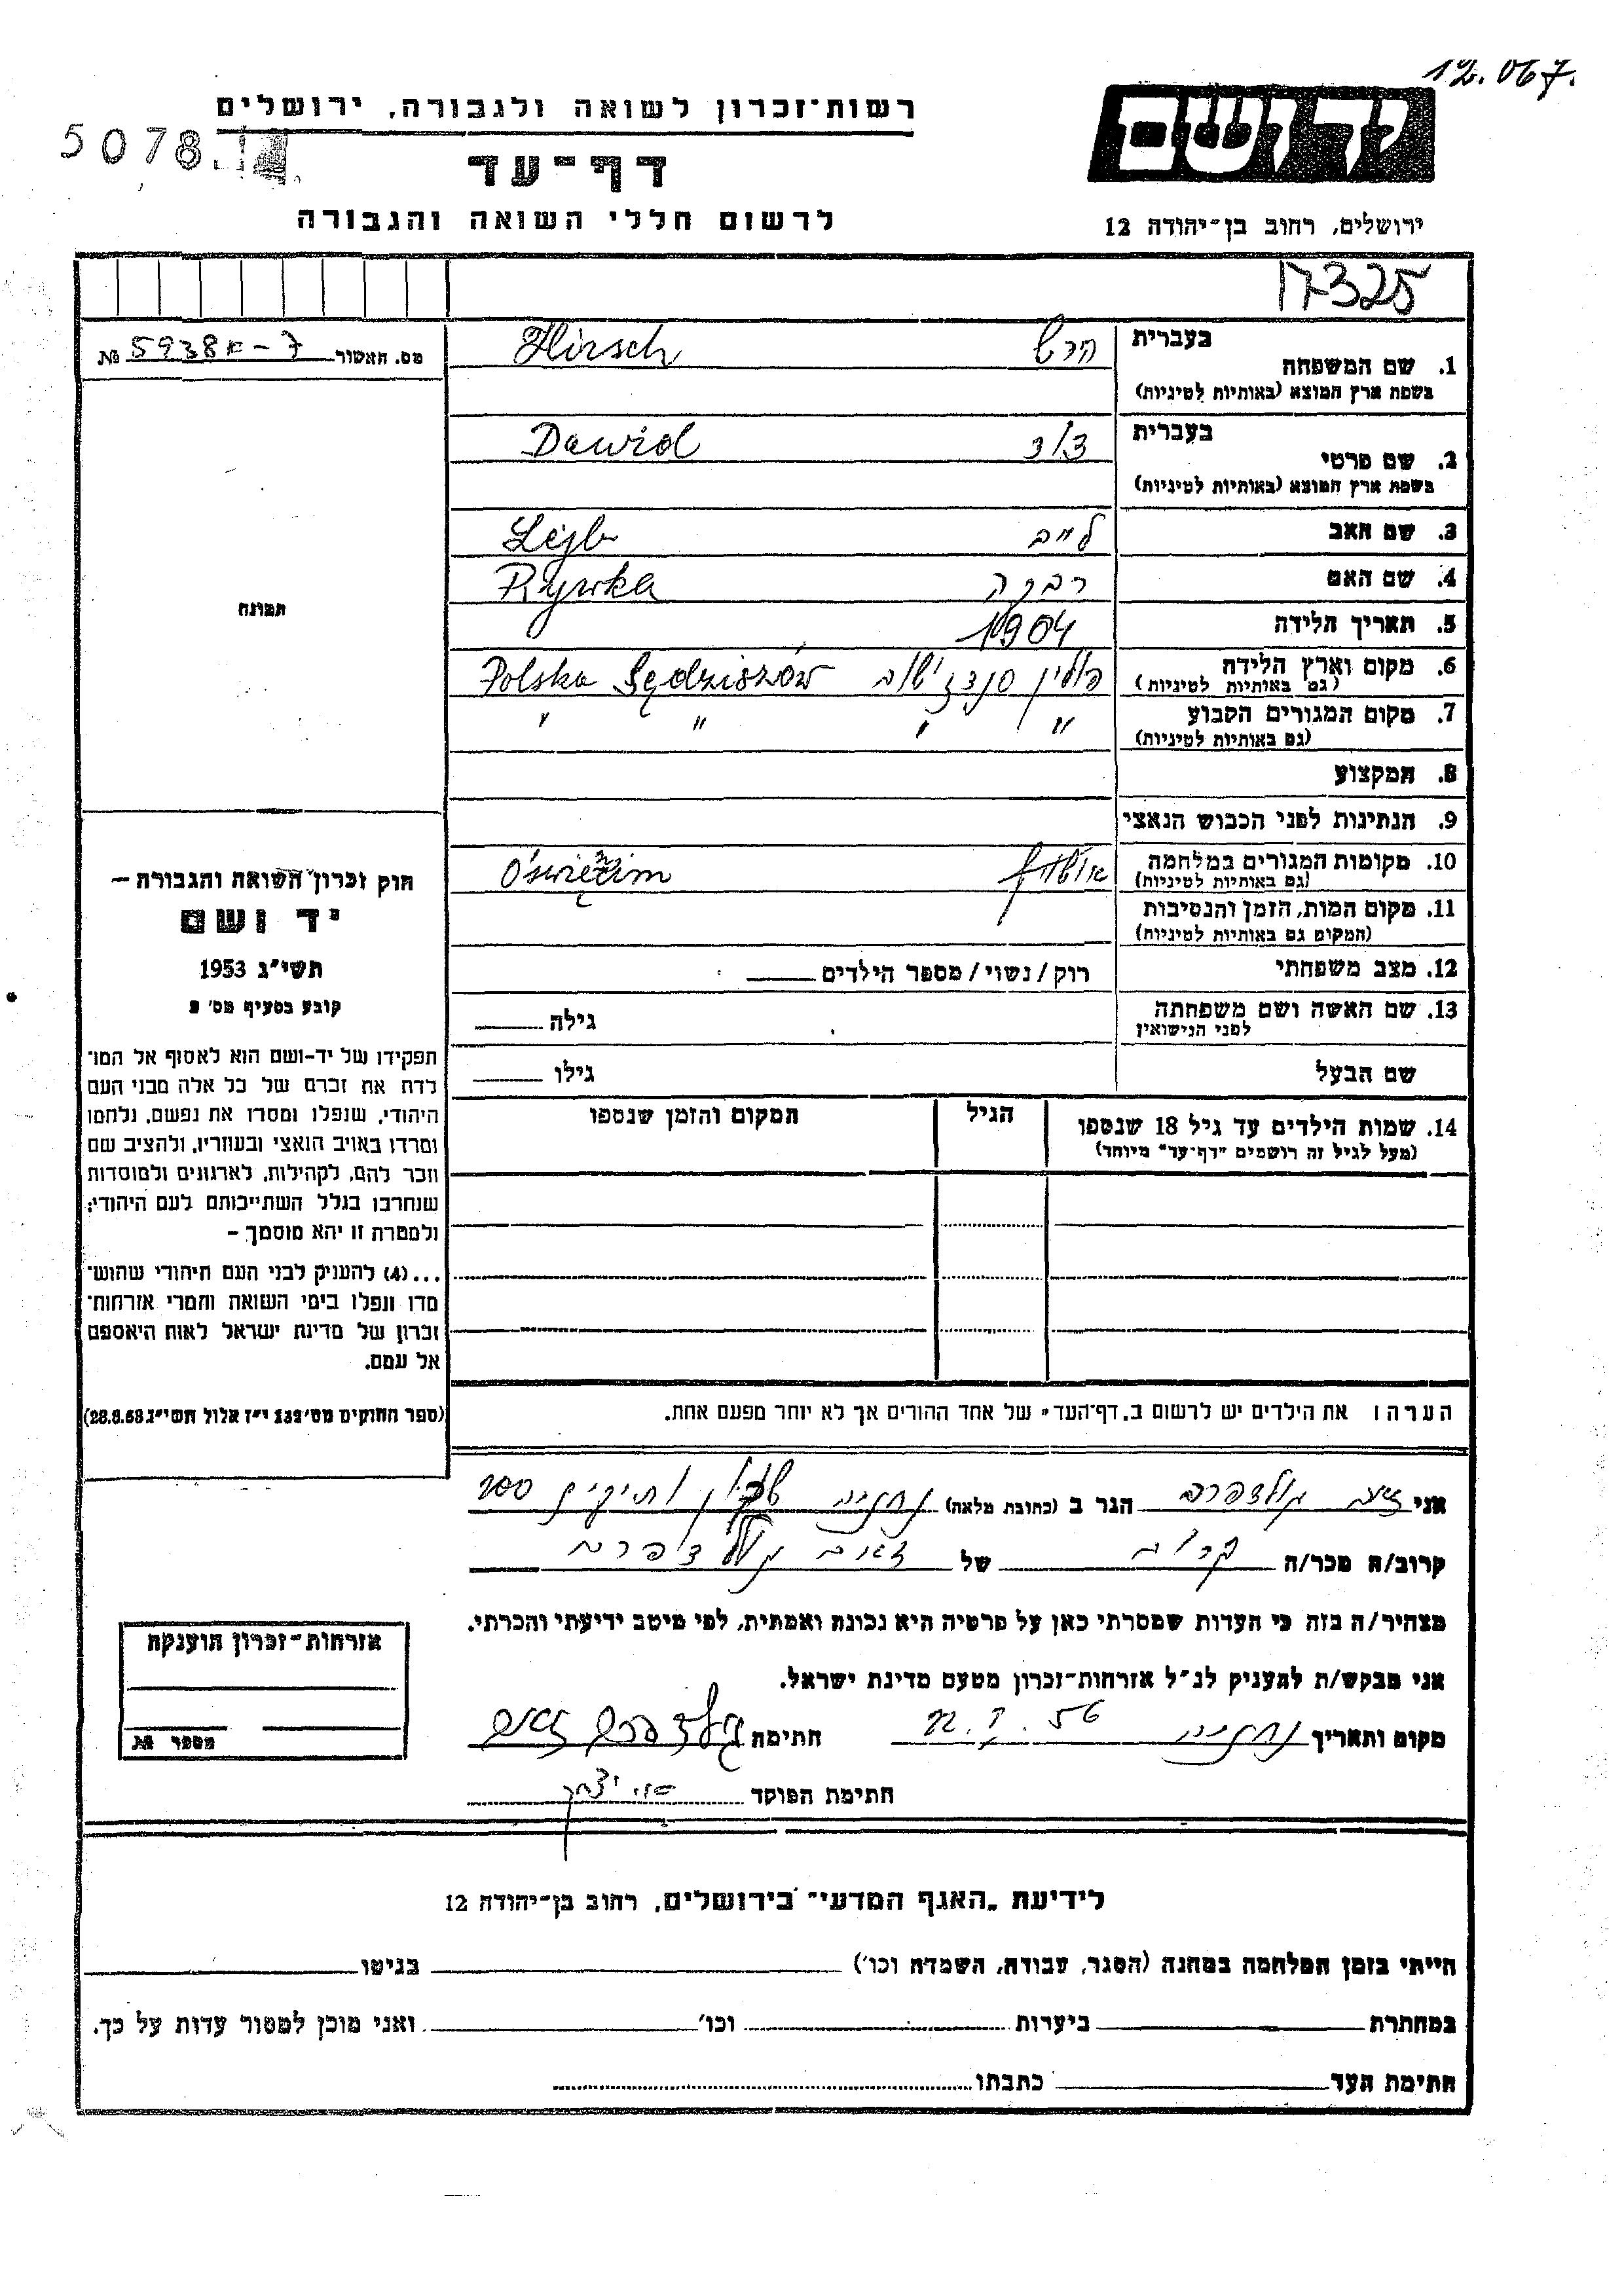 12.067.
יד ושם
רשות־זכרון לשואה ולגבורה, ירושלים
5078
דף־עד
לרשום חללי השואה והגבורה
ירושלים, רחוב בן־יהודה 12
17325
מס. האשור 5938ה-7 №
1. שם המשפחה בעברית הרש Hirsch
בשפת ארץ המוצא (באותיות לטיניות)
2. שם פרטי בעברית דוד Dawid
בשפת ארץ המוצא (באותיות לטיניות)
3. שם האב לייב Lejb
4. שם האם רבקה Rywka
5. תאריך הלידה 1904
6. מקום וארץ הלידה פולין סנדזישוב Polska Sędziszów
(גם באותיות לטיניות)
7. מקום המגורים הקבוע " " " "
(גם באותיות לטיניות)
8. המקצוע
9. הנתינות לפני הכבוש הנאצי
10. מקומות המגורים במלחמה Oświęcim
(גם באותיות לטיניות)
11. מקום המות, הזמן והנסיבות
(המקום גם באותיות לטיניות)
12. מצב משפחתי רוק/נשוי/מספר הילדים
13. שם האשה ושם משפחתה גילה
לפני הנישואין
שם הבעל גילו
14. שמות הילדים עד גיל 18 שנספו הגיל המקום והזמן שנספו
(מעל לגיל זה רושמים "דף־עד" מיוחד)
תמונה
חוק זכרון השואה והגבורה –
יד ושם
תשי"ג 1953
קובע בסעיף מס' 2
תפקידו של יד-ושם הוא לאסוף אל המו־
לדת את זכרם של כל אלה מבני העם
היהודי, שנפלו ומסרו את נפשם, נלחמו
ומרדו באויב הנאצי ובעוזריו, ולהציב שם
וזכר להם, לקהילות, לארגונים ולמוסדות
שנחרבו בגלל השתייכותם לעם היהודי;
ולמטרה זו יהא מוסמך –
...(4) להעניק לבני העם היהודי שהוש־
מדו ונפלו בימי השואה והמרי אזרחות־
זכרון של מדינת ישראל לאות היאספם
אל עמם.
(ספר החוקים מס' 132 י"ז אלול תשי"ג 28.8.53)
הערה: את הילדים יש לרשום ב„דף־העד" של אחד ההורים אך לא יותר מפעם אחת.
אני זאב גולדפרב הגר ב (כתובת מלאה) נתניה שכון ותיקים 200
קרוב/ה מכר/ה קרוב של זאב גולדפרב
מצהיר/ה בזה כי העדות שמסרתי כאן על פרטיה היא נכונה ואמתית, לפי מיטב ידיעתי והכרתי.
אני מבקש/ת להעניק לנ"ל אזרחות־זכרון מטעם מדינת ישראל.
מקום ותאריך נתניה 56 חתימה גולדפרב זאב
חתימת הפוקד
אזרחות־זכרון הוענקה
מספר №
לידיעת „האגף המדעי" בירושלים, רחוב בן־יהודה 12
הייתי בזמן המלחמה במחנה (הסגר, עבודה, השמדה וכו') בגיטו
במחתרת ביערות וכו' ואני מוכן למסור עדות על כך.
חתימת העד כתבתו